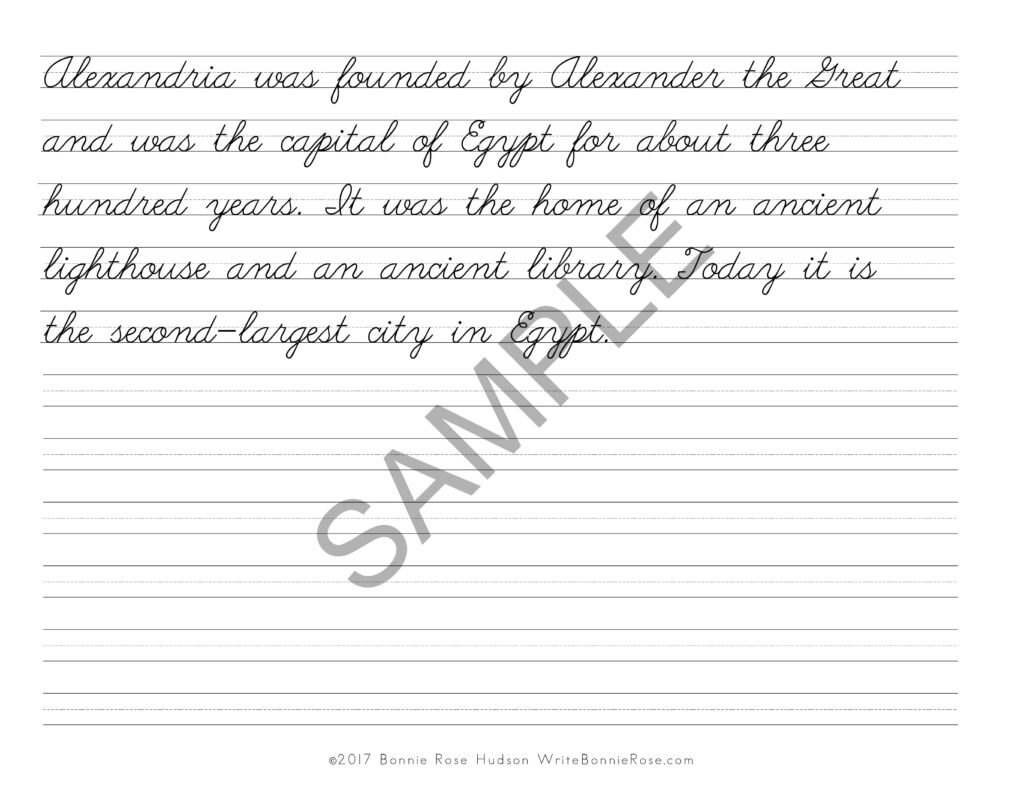 Alexandria was founded by Alexander the Great
and was the capital of Egypt for about three
hundred years. It was the home of an ancient
lighthouse and an ancient library. Today it is
the second-largest city in Egypt.
SAMPLE
©2017 Bonnie Rose Hudson WriteBonnieRose.com